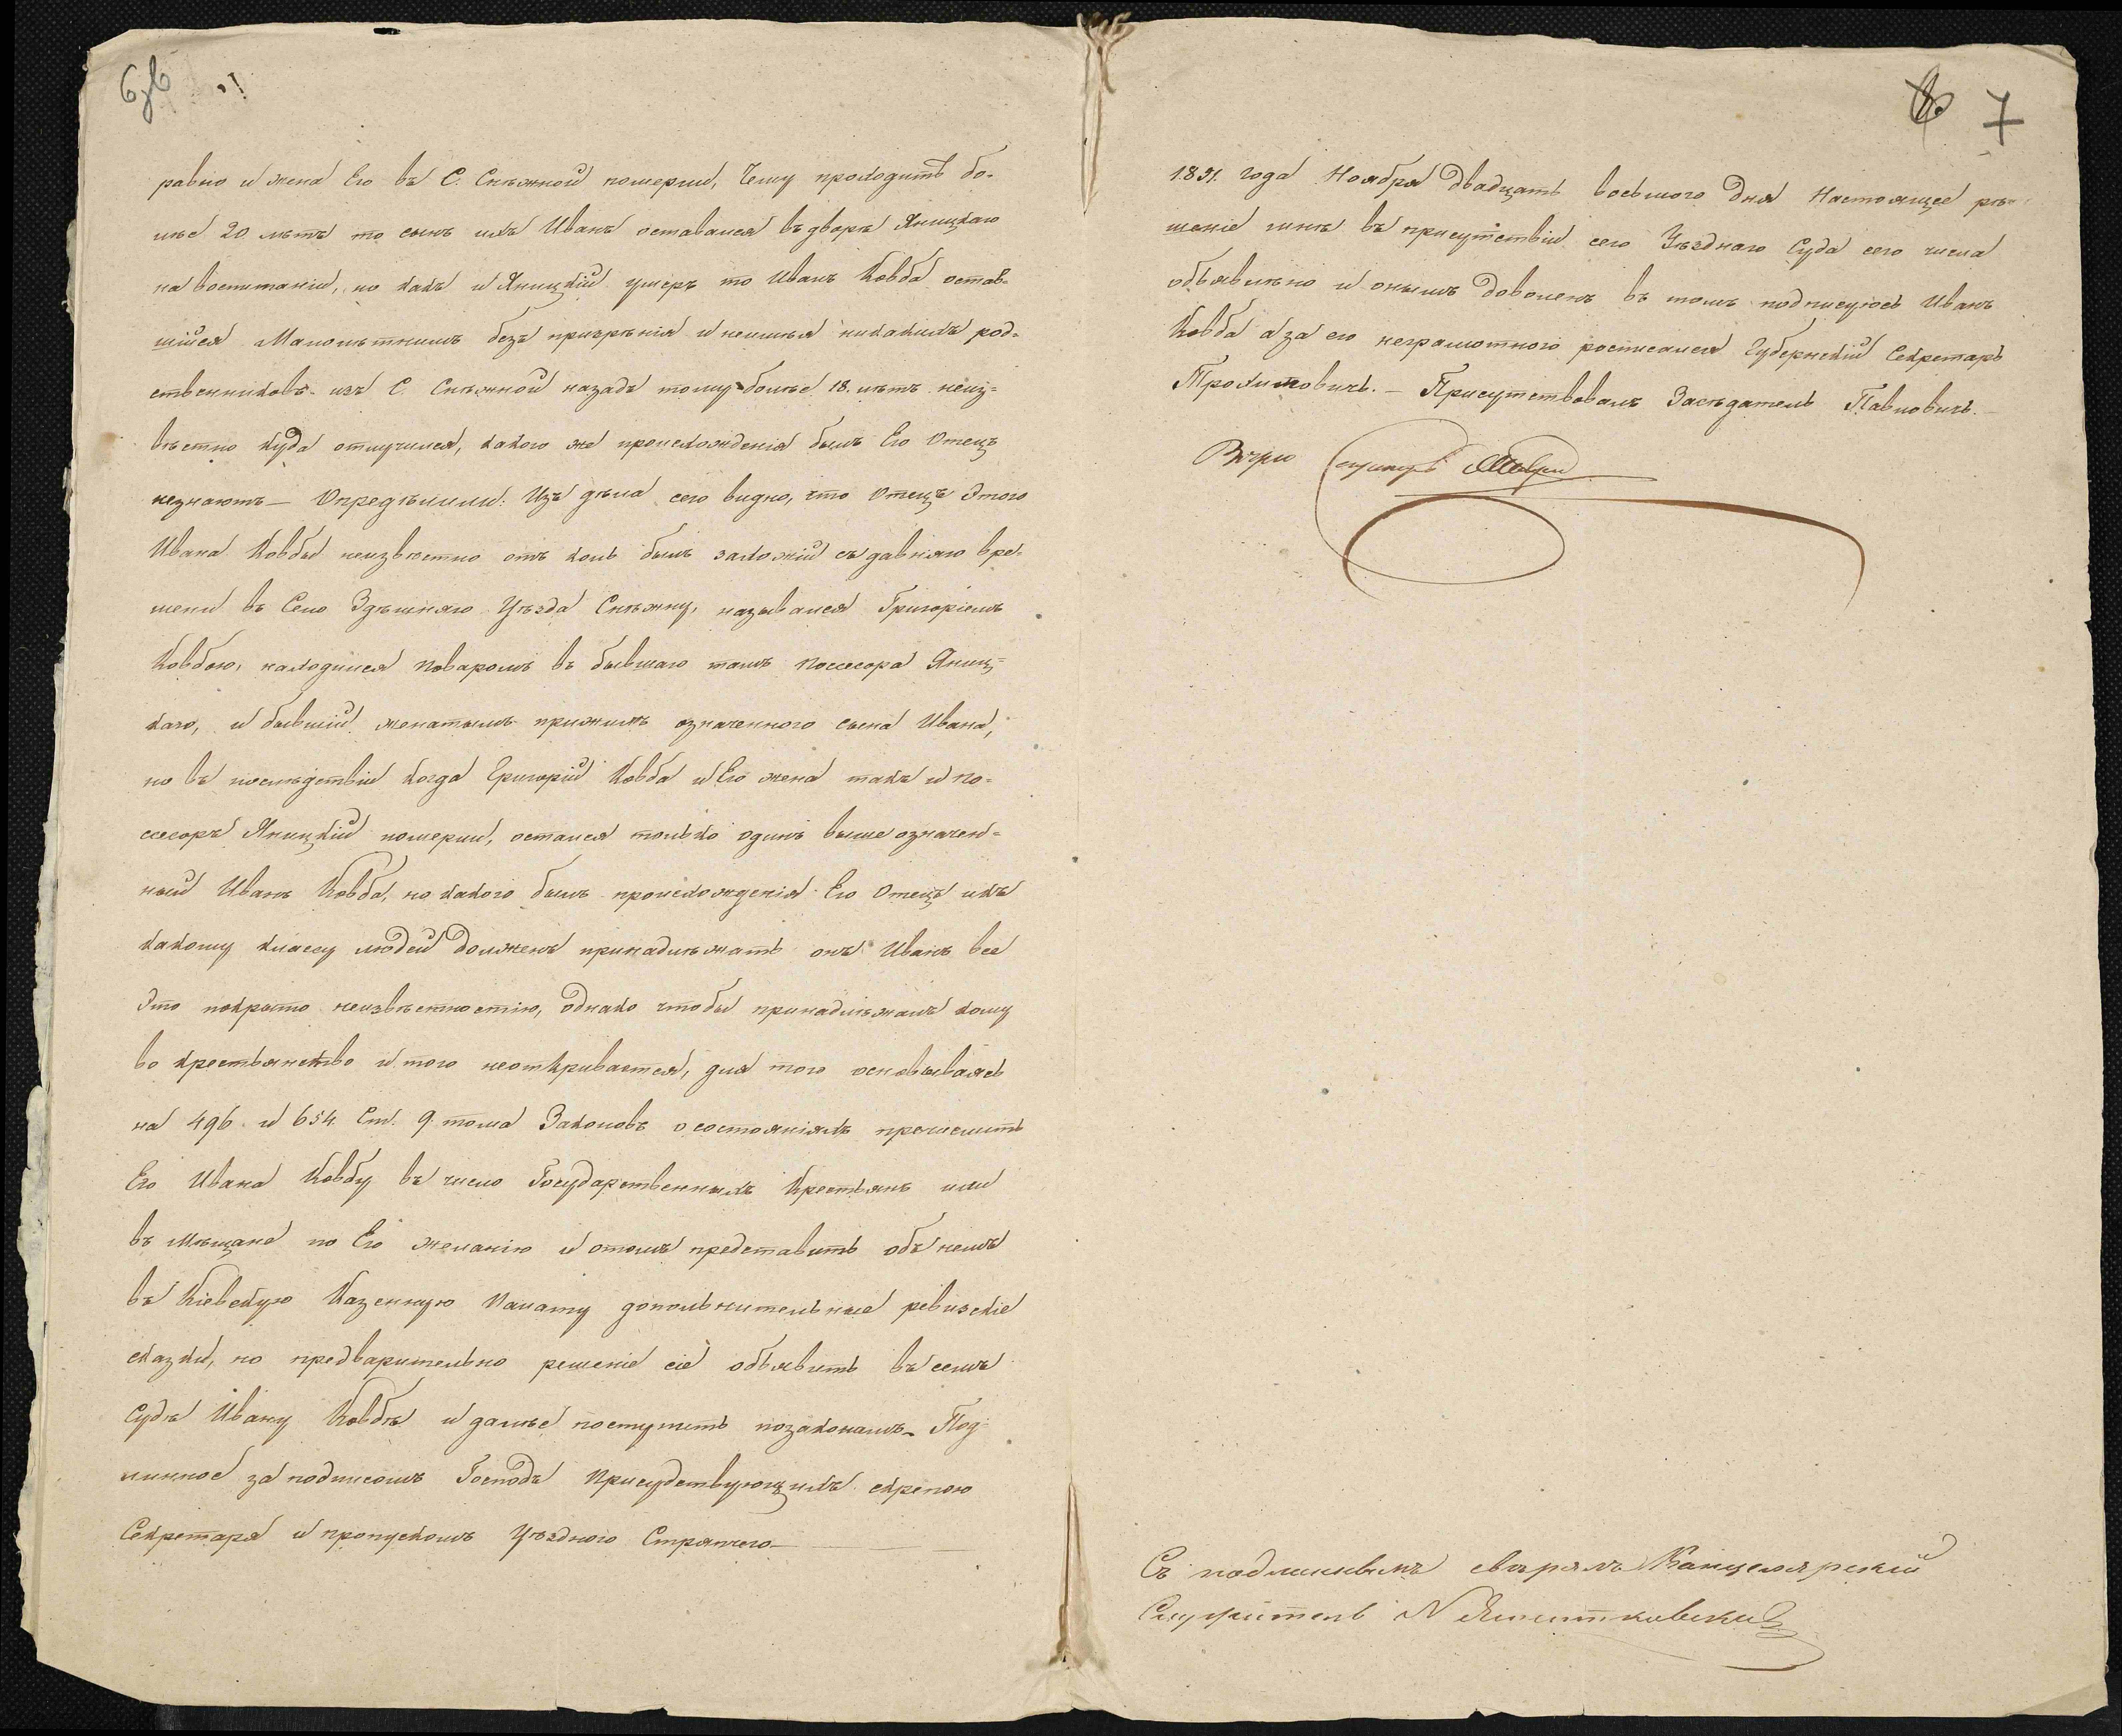 равно и жена Его въ С. Снѣжной померли, Чему проходитъ бо-
лѣе 20 лѣтъ то сынъ ихъ Иванъ оставался въ дворѣ Яницкаго
на воспитаніи, но какъ и Яницкій умеръ то Иванъ Ковба остав-
шійся Малолѣтнимъ безъ призрѣнія и неимѣя никакихъ род-
ственниковъ изъ С. Снѣжной назадъ тому болѣе 18. лѣтъ неиз-
вѣстно куда отлучился, какого же происхожденія былъ Его Отецъ
незнаютъ — Опредѣлили: Изъ дѣла сего видно, что Отецъ Этого
Ивана Ковбы неизвѣстно отъ коль былъ захожій съ давняго вре-
мени въ Село Здѣшняго Уѣзда Снѣжну, назывался Григоріемъ
Ковбою, находился Поваромъ въ бывшаго тамъ Поссесора Яниц-
каго, и бывшій женатымъ прижилъ означенного сына Ивана,
но въ послѣдствіи когда Григорій Ковба и Его жена такъ и По-
ссесоръ Яницкій померли, остался только одинъ выше означен-
ный Иванъ Ковба, но какого былъ происхожденія Его Отецъ икъ
какому классу людей долженъ принадлѣжать онъ Иванъ все
Это покрыто неизвѣстностію, однако чтобы принадлѣжалъ кому
во крестьянство и того неоткривается, для того основываясь
на 496. и 654. Ст. 9 тома Законовъ о состояніяхъ пречислить
Его Ивана Ковбу въ число Государственныхъ Крестьянъ или
въ мѣщане по Его желанію и отомъ представить объ немъ
въ Кіевскую Казенную Палату дополнительные ревизскіе
сказки, но предварительно решеніе сіе объявить въ семъ
Судѣ Ивану Ковбѣ и далѣе поступить позаконамъ. Под-
линное за подписомъ Господъ Присудствующихъ скрепою
Секретаря и пропускомъ Уѣздного Стряпчего
7
1851. года Ноября двадцать восьмого Дня Настоящее рѣ-
шеніе мнѣ въ присутствіи сего Уѣзднаго Суда сего числа
объявлѣно и онымъ доволенъ въ томъ подписуюсь Иванъ
Ковба а за его неграмотного росписался Губернскій Секретарь
Трохимовичь. — Присутствовалъ Засѣдатель Павловичь. —
Съ подлиннымъ свѣрялъ Канцелярскій
Служитель